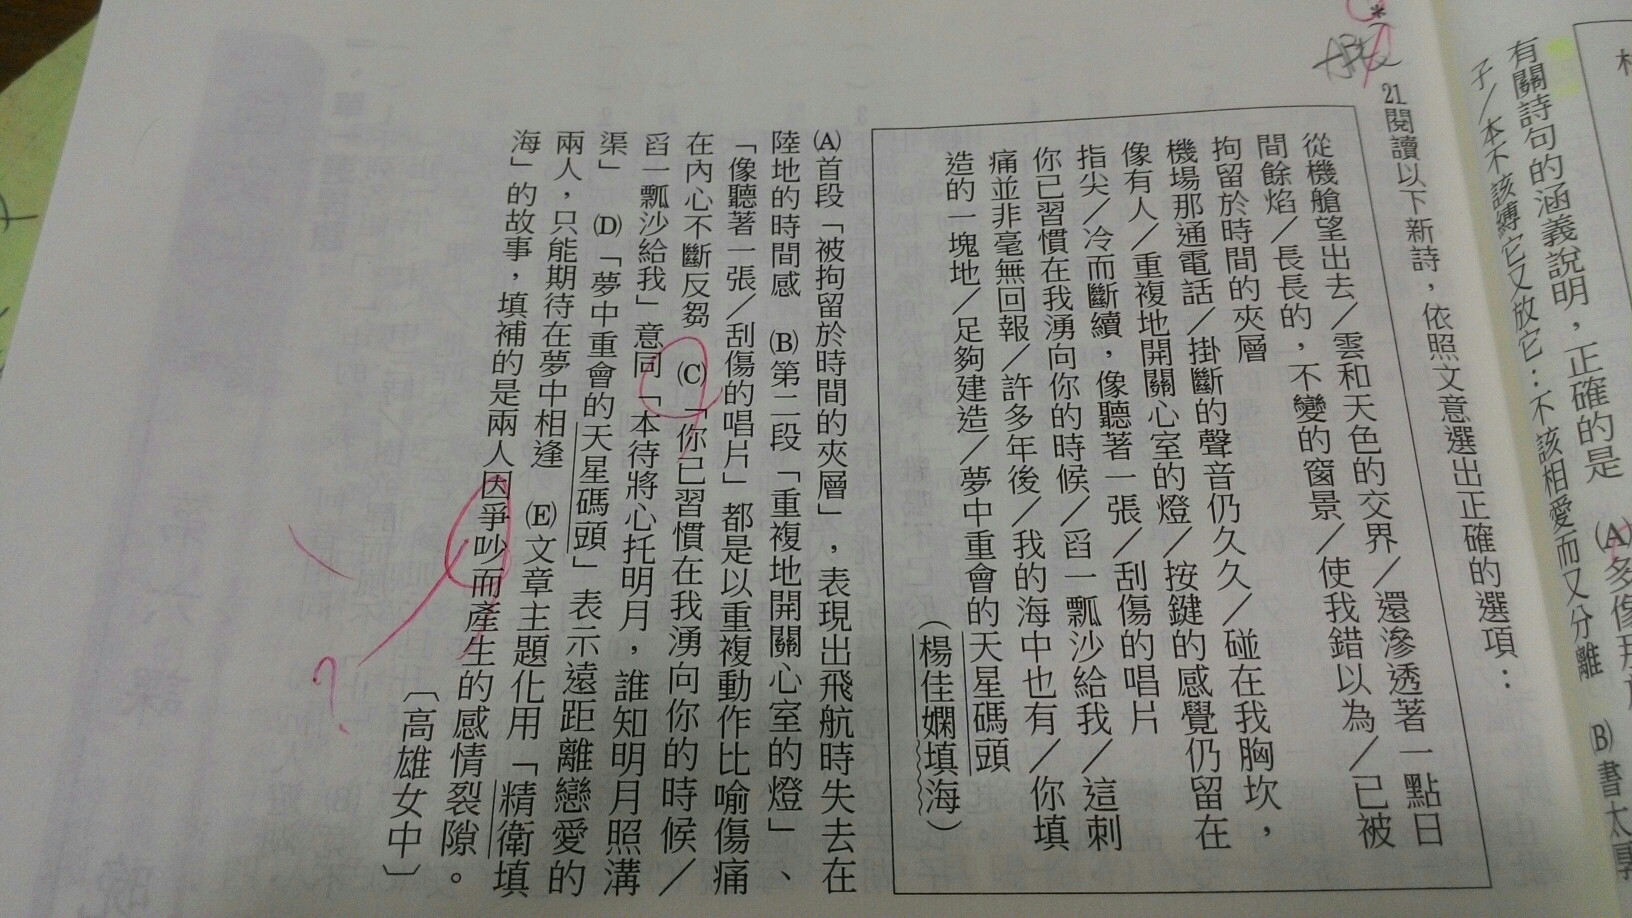 有關詩句的涵義說明，正確的是 (A)多像那
子／本不該縛它又放它：不該相愛而又分離 (B)書太
*( )21閱讀以下新詩，依照文意選出正確的選項：
從機艙望出去／雲和天色的交界／還滲透著一點日
間餘焰／長長的，不變的窗景／使我錯以為／已被
拘留於時間的夾層
機場那通電話／掛斷的聲音仍久久／碰在我胸坎，
像有人／重複地開關心室的燈／按鍵的感覺仍留在
指尖／冷而斷續，像聽著一張／刮傷的唱片
你已習慣在我湧向你的時候／舀一瓢沙給我／這刺
痛並非毫無回報／許多年後／我的海中也有／你填
造的一塊地／足夠建造／夢中重會的天星碼頭
（楊佳嫻填海）
(A)首段「被拘留於時間的夾層」，表現出飛航時失去在
陸地的時間感 (B)第二段「重複地開關心室的燈」、
「像聽著一張／刮傷的唱片」都是以重複動作比喻傷痛
在內心不斷反芻 (C)「你已習慣在我湧向你的時候／
舀一瓢沙給我」意同「本待將心托明月，誰知明月照溝
渠」 (D)「夢中重會的天星碼頭」表示遠距離戀愛的
兩人，只能期待在夢中相逢 (E)文章主題化用「精衛填
海」的故事，填補的是兩人因爭吵而產生的感情裂隙。
〔高雄女中〕
?
第六課